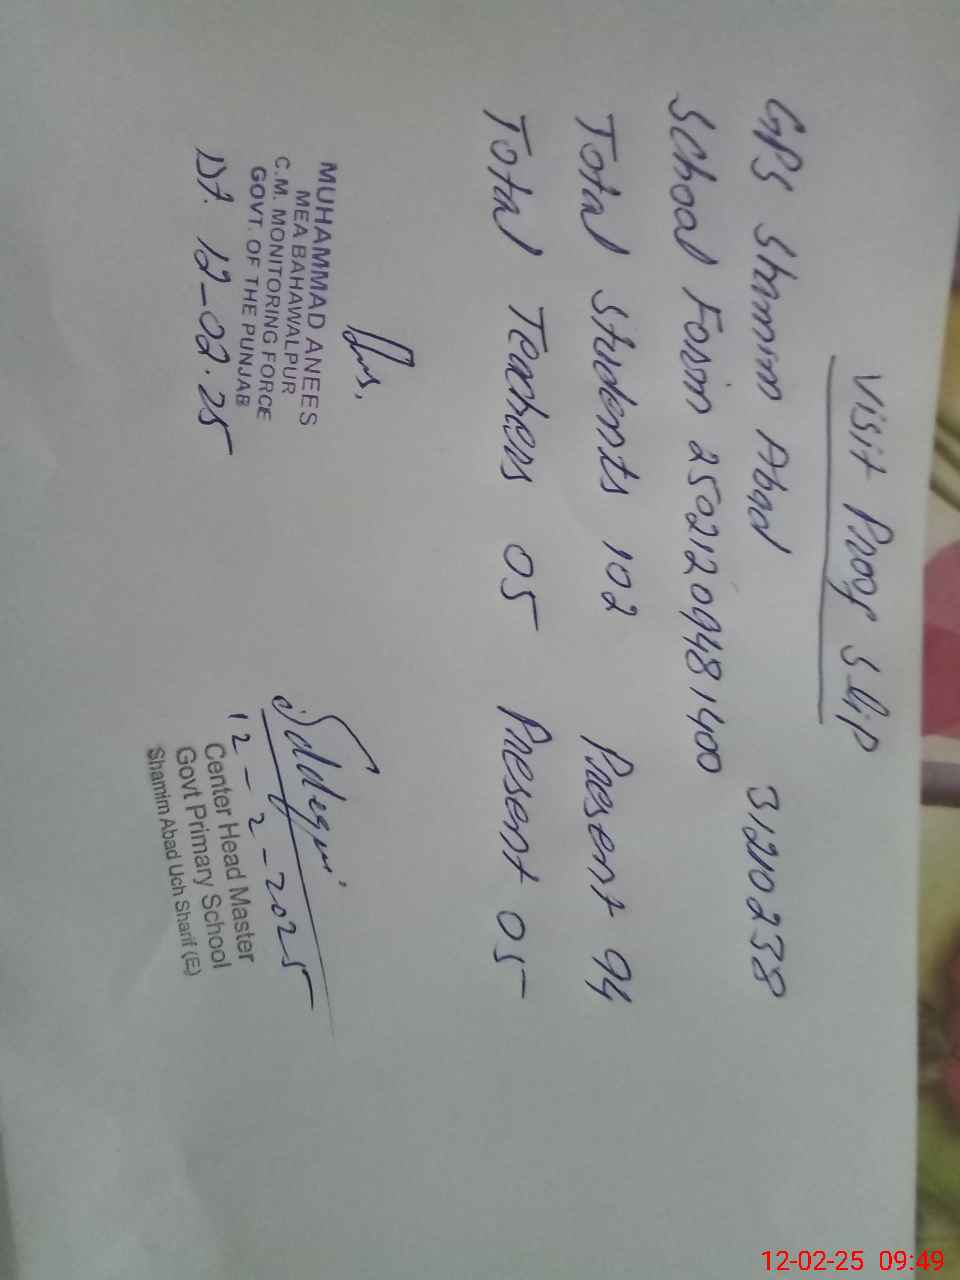 Visit Proof Slip
GPS Shamim Abad 31210238
School Form 25021209481400
Total Students 102 Present 94
Total Teachers 05 Present 05
MUHAMMAD ANEES
MEA BAHAWALPUR
C.M. MONITORING FORCE
GOVT. OF THE PUNJAB
Dt. 12-02-25
12-2-2025
Center Head Master
Govt Primary School
Shamim Abad Uch Sharif (E)
12-02-25 09:49